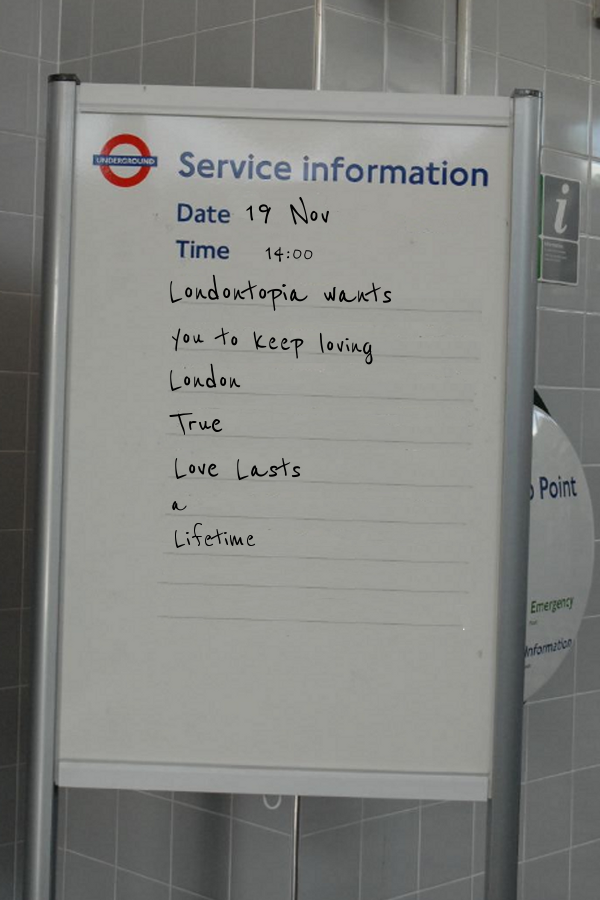 UNDERGROUND
Service information
Date 19 Nov
Time 14:00
Londontopia wants
you to keep loving
London
True
Love Lasts
a
Lifetime
i
Point
Emergency
Information